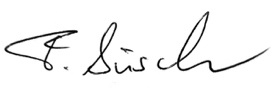 F. Süsch